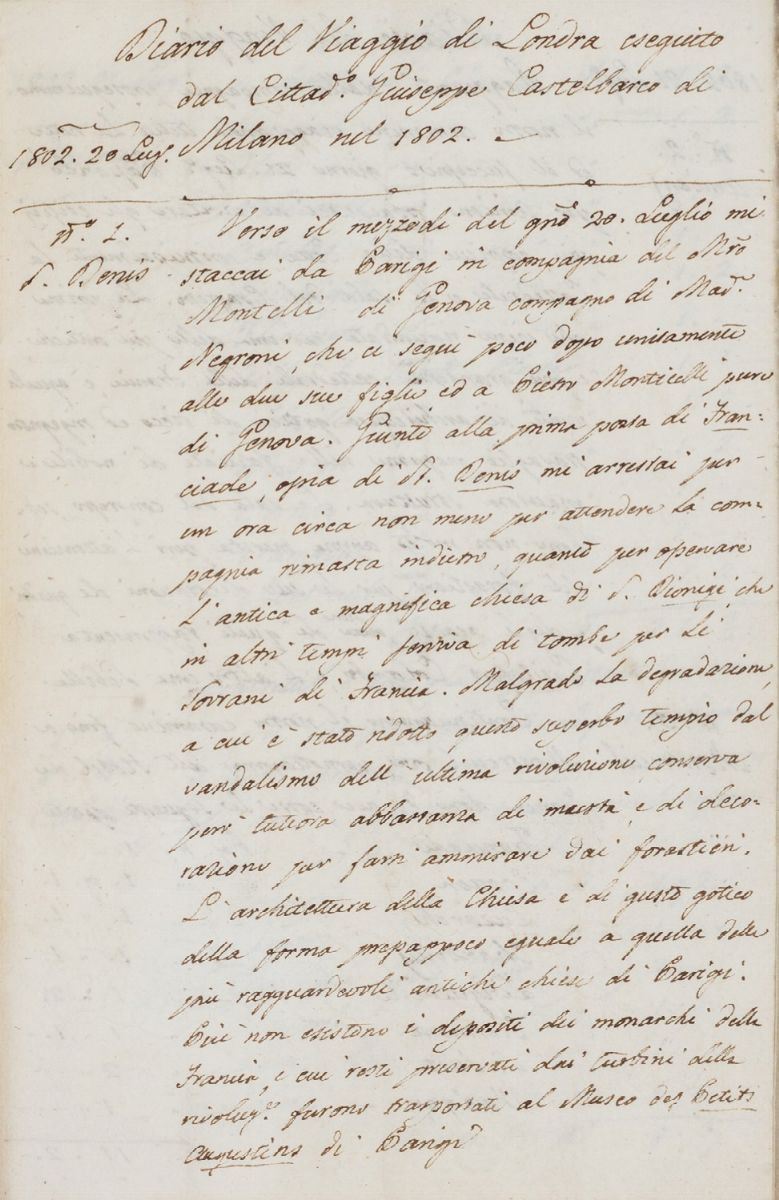 Diario del Viaggio di Londra eseguito
dal Cittad.º Giuseppe Castelbarco di
Milano nel 1802.
1802. 20 Lug.
nº. 1.
S. Denis
Verso il mezzodi del qnõ 20. Luglio mi
staccai da Parigi in compagnia del Mrõ
Montelli di Genova compagno di Mad.ª
Negroni, che ci seguì poco dopo unitamente
alle due sue figlie ed a Pietro Monticelli pure
di Genova. Giunto alla prima posta di Fran=
ciade, ossia di St. Denis mi arrestai per
un ora circa non meno per attendere la com=
pagnia rimasta indietro, quanto per osservare
L'antica e magnifica chiesa di S. Dionigi che
in altri tempi serviva di tombe per li
Sovrani di Francia. Malgrado la degradazione,
a cui è stato ridotto questo superbo tempio dal
vandalismo dell'ultima rivoluzione conserva
però tuttora abbastanza di maestà e di deco-
razione per farsi ammirare dai forastieri.
L'architettura della Chiesa è di gusto gotico
della forma pressappoco eguale a quella delle
più ragguardevoli antiche chiese di Parigi.
Più non esistono i depositi dei monarchi della
Francia, i cui resti preservati dai turbini della
rivoluz.e furono trasportati al Museo des Petits
Augustins di Parigi